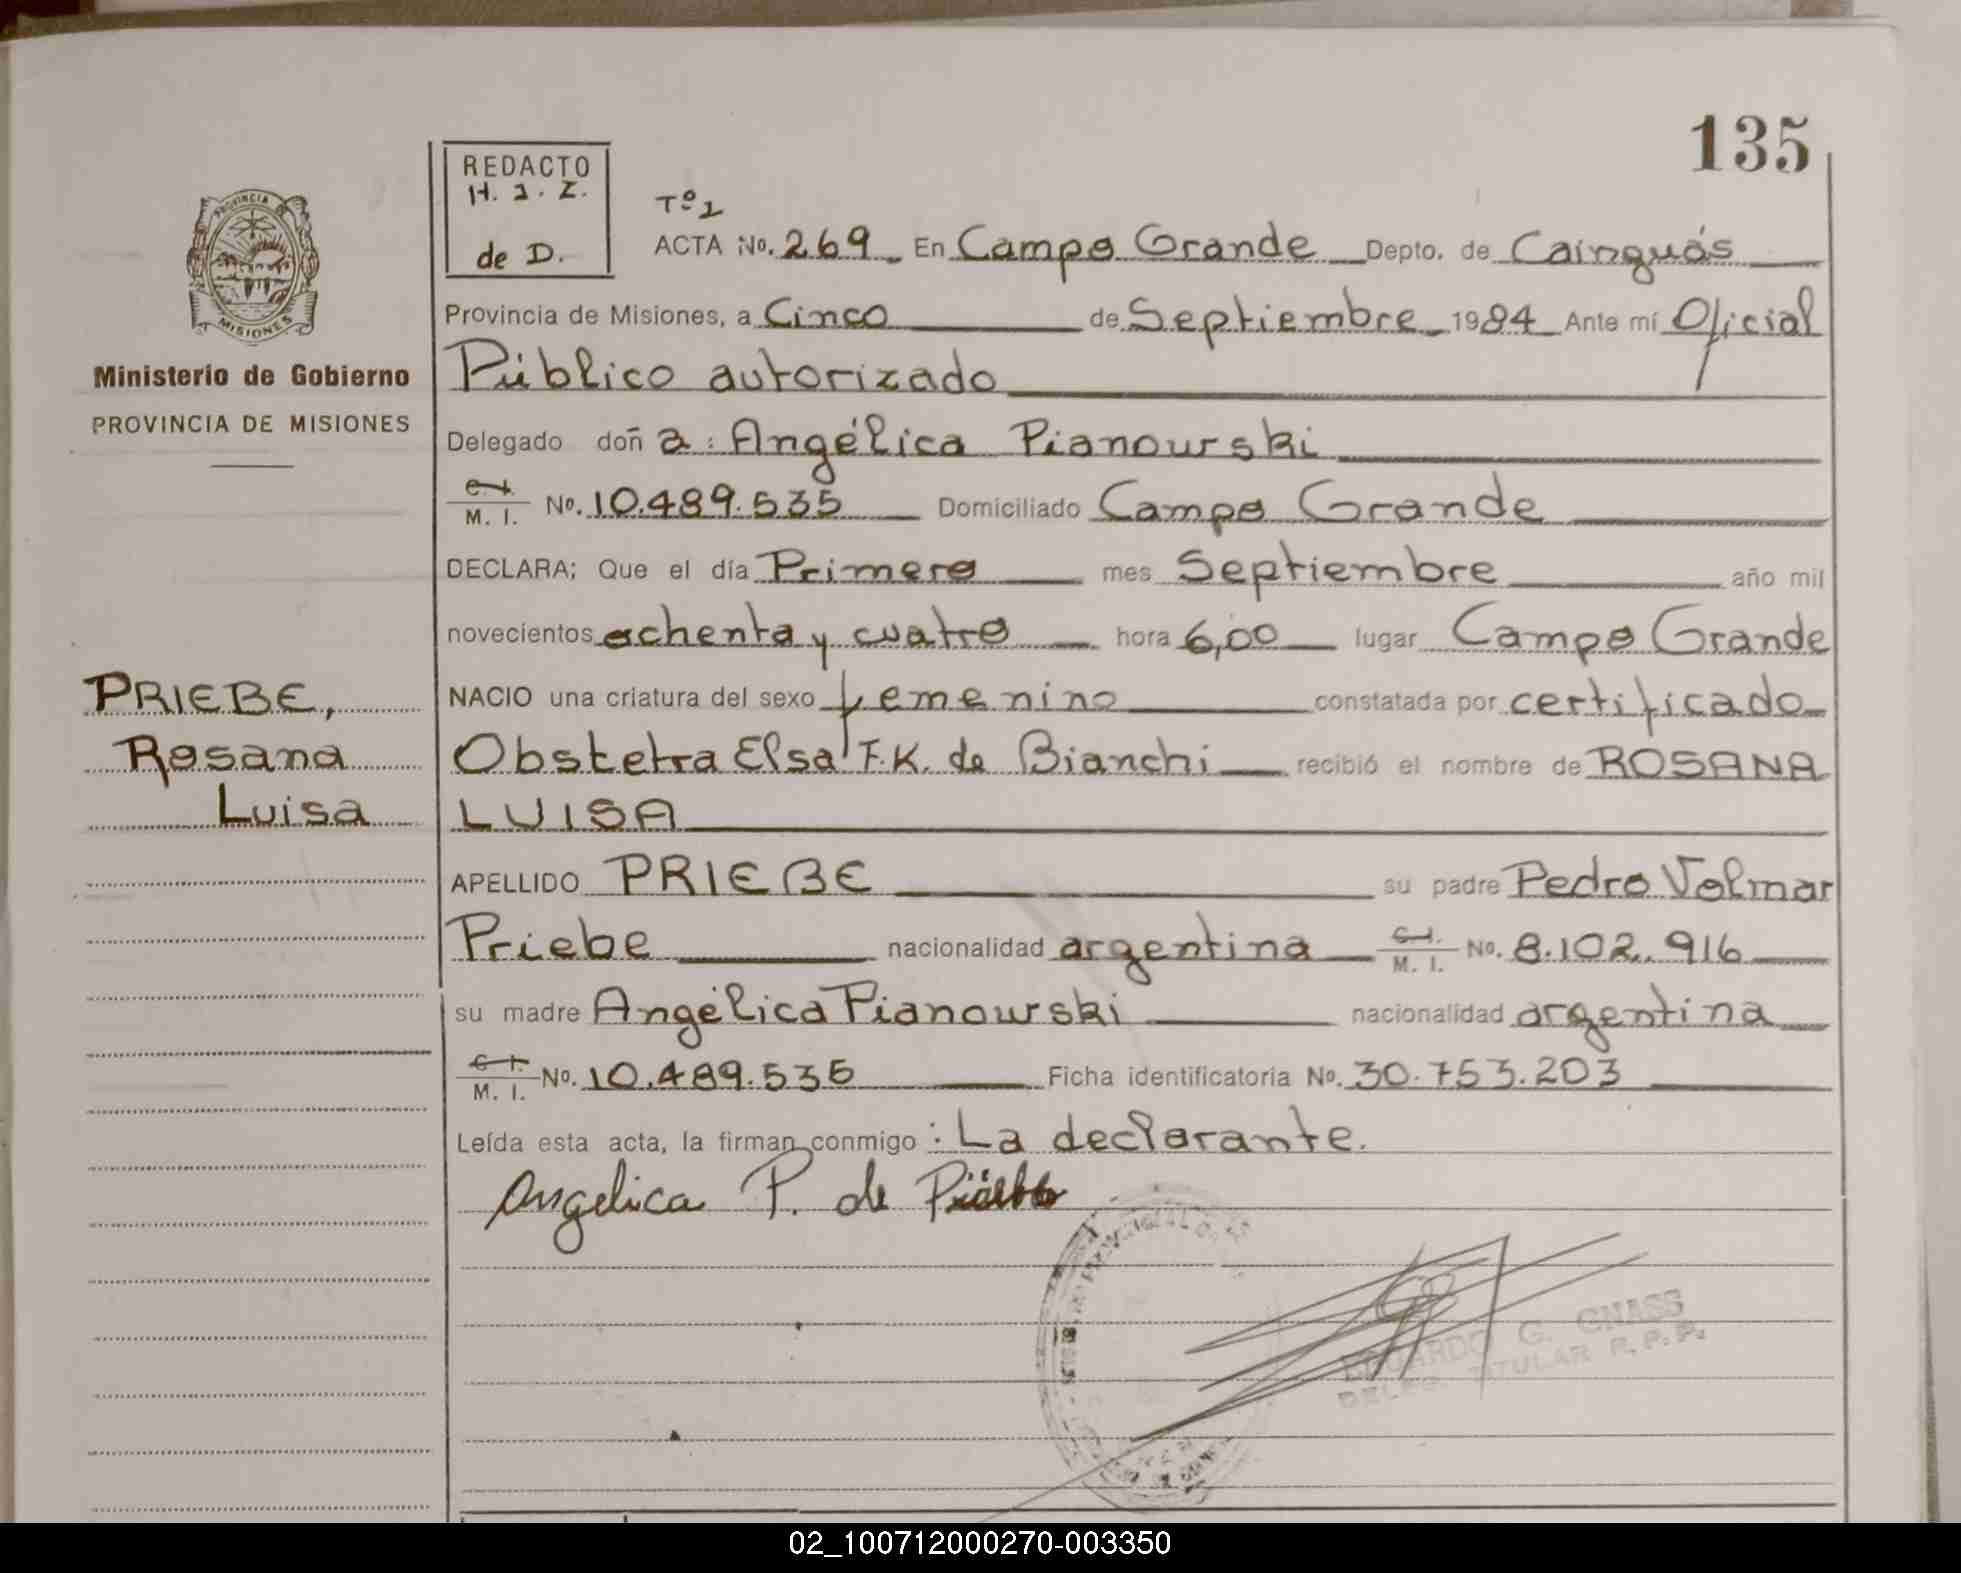 135
REDACTO
H. J. Z.
de D.
Tº 1
ACTA No. 269 En Campo Grande Depto. de Cainguás
Provincia de Misiones, a Cinco de Septiembre 1984 Ante mí Oficial
Público autorizado
PROVINCIA DE
MISIONES
Ministerio de Gobierno
PROVINCIA DE MISIONES
Delegado doñ a: Angélica Pianowski
C. I.
M. I. No. 10.489.535 Domiciliado Campo Grande
DECLARA; Que el día Primero mes Septiembre año mil
novecientos ochenta y cuatro hora 6,00 lugar Campo Grande
PRIEBE,
Rosana
Luisa
NACIO una criatura del sexo femenino constatada por certificado
Obstetra Elsa F.K. de Bianchi recibió el nombre de ROSANA
LUISA
APELLIDO PRIEBE su padre Pedro Volmar
Priebe nacionalidad argentina C. I. M. I. No. 8.102.916
su madre Angélica Pianowski nacionalidad argentina
C. I.
M. I. No. 10.489.535 Ficha identificatoria No. 30.753.203
Leída esta acta, la firman conmigo : La declarante.
Angelica P. de
EDUARDO G. GNASS
DELEG. TITULAR R. P. P.
02_100712000270-003350